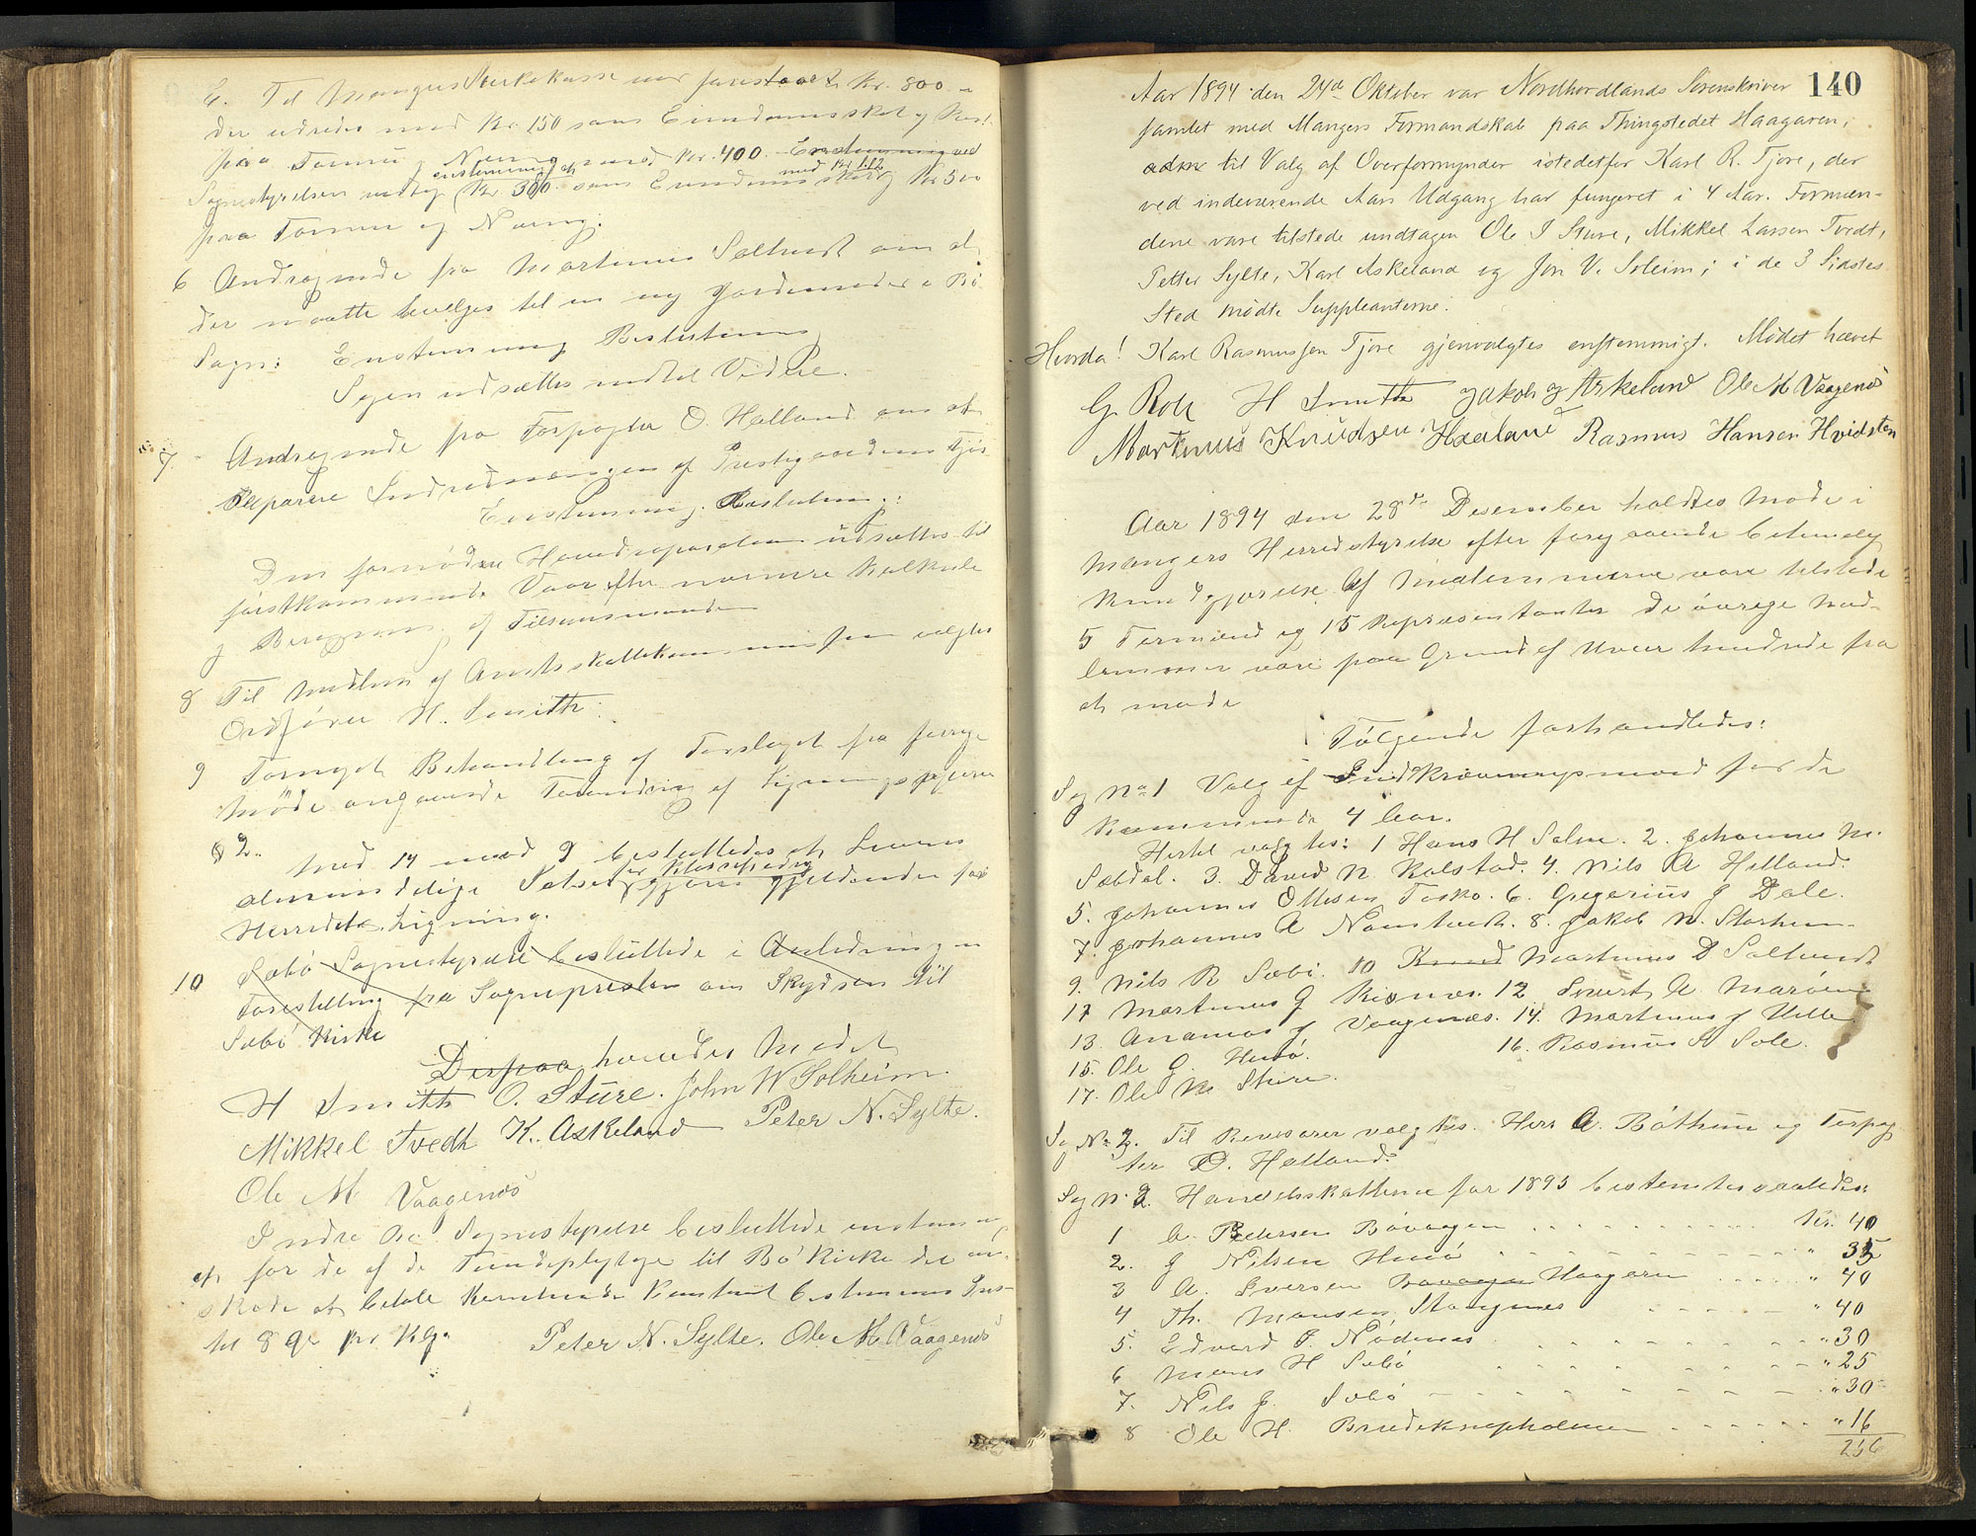 E. Til Mangers Kirkekasse forestaar Kr. 800
der udredes med Kr. 150 som Eiendomsskat og Rest
paa Formue og Næring med Kr. 400. Enstemmig ved
enstemmig at med Kr 1.12
Sognestyrelsen vedtog Kr 300 som Eiendomsskat og Kr 500
paa Formue og Næring.
6 Andragende fra Martinus Sæltvedt om at
der maatte bevilges til en ny Jordemoder i Bø
Sogn: Enstemmig Beslutning
Sagen udsættes indtil Videre.
7 Andragende fra Forpagter O. Helland om at
Reparere Indredningen af Prestegaardens Fjøs
Enstemmig Beslutning:
Den fornødne Hovedreparation udsættes til
førstkommende Vaar efter nærmere Kalkule
og Beregning af Tilsynsmanden
8 Til Medlem af Amtsskattekommissionen valgtes
Ordfører H. Smith.
9 Fornyet Behandling af Forslaget fra forrige
Møde angaaende Forandring af Ligningspgterne
§ 2.
Med 14 mod 9 besluttedes at Lovens
er Klassificering
almindelige Satser gjøres gjældende for
Herredets Ligning.
10 Sæbø Sognestyrelse besluttede i Anledning en
Forestilling fra Sognepresten om Skydsen til
Sæbø Kirke
Derpaa hævedes Mødet
H Smith O. Sture. John W Solheim.
Mikkel Tvedt K. Askeland Peter N. Sylte.
Ole M Vaagenes
Indre Bø Sognestyrelse besluttede enstemmig
at for de af de Tiendepligtige til Bø Kirke det
skede at betale Korntiende Kontant bestemmes
til 8 Øre pr. Kg. Peter N. Sylte. Ole M. Vaagenes
140
Aar 1894 den 24de Oktober var Nordhordlands Sorenskriver
samlet med Mangers Formandskab paa Thingstedet Haagaren,
til Valg af Overformynder istedetfor Karl R. Fjore, der
ved indeværende Aars Udgang har fungeret i 4 Aar. Formæn-
dene vare tilstede undtagen Ole I Sture, Mikkel Larsen Tvedt,
Petter Sylte, Karl Askeland og Jon V. Soleim; i de 3 Sidstes
Sted mødte Suppleanterne.
Hvorda! Karl Rasmussen Fjore gjenvalgtes enstemmigt. Mødet hævet
G Roll H Smith Jakob J Askeland Ole M Vaagenes
Martinus Knudsen Hæland Rasmus Hansen Hvidsten
Aar 1894 den 28de Desember holdtes Møde i
Mangers Herredsstyrelse efter foregaaende betimelig
Kundgjørelse. Af Medlemmerne vare tilstede
5 Formænd og 15 Repræsentanter De øvrige Med-
lemmer vare paa Grund af Uveir hindrede fra
at møde
Følgende forhandledes:
Sag No 1 Valg af Inndkrævningsmænd for de
kommende 4 Aar.
Hertil valgtes: 1 Hans H Salm. 2. Johannes M.
Sæbdal. 3. David N. Kolstad. 4. Nils A Helland.
5. Johannes Ottesen Toska. 6. Gregorius J Dale.
7. Johannes A Namtvedt. 8. Jakob N. Storheim.
9. Nils R Sæbø. 10 Knud Martinus D Sæltvedt
11 Martinus J Risnes. 12 Sivert A Marøen
13. Ananias J Vaagenæs. 14. Martinus J Hille
15. Ole G. Hernø. 16. Rasmus A Sole.
17. Ole M. Sture.
Sag No 2. Til Revisorer valgtes. Herr A. Bøthun og Forpag-
ter O. Helland.
Sag N. 2. Handelsskatterne for 1895 bestemtes saaledes:
1 A. Pedersen Bøvaagen Kr. 40
2. J Nilsen Hernø " 35
3 A. Iversen Haagaren " 40
4 Th. Monsen Staagenes " 40
5. Edvard J. Nødenes " 30
6 Mons H Sæbø " 25
7. Nils J. Sæbø " 30
8 Ole H. Brudeknapholmen " 16
256